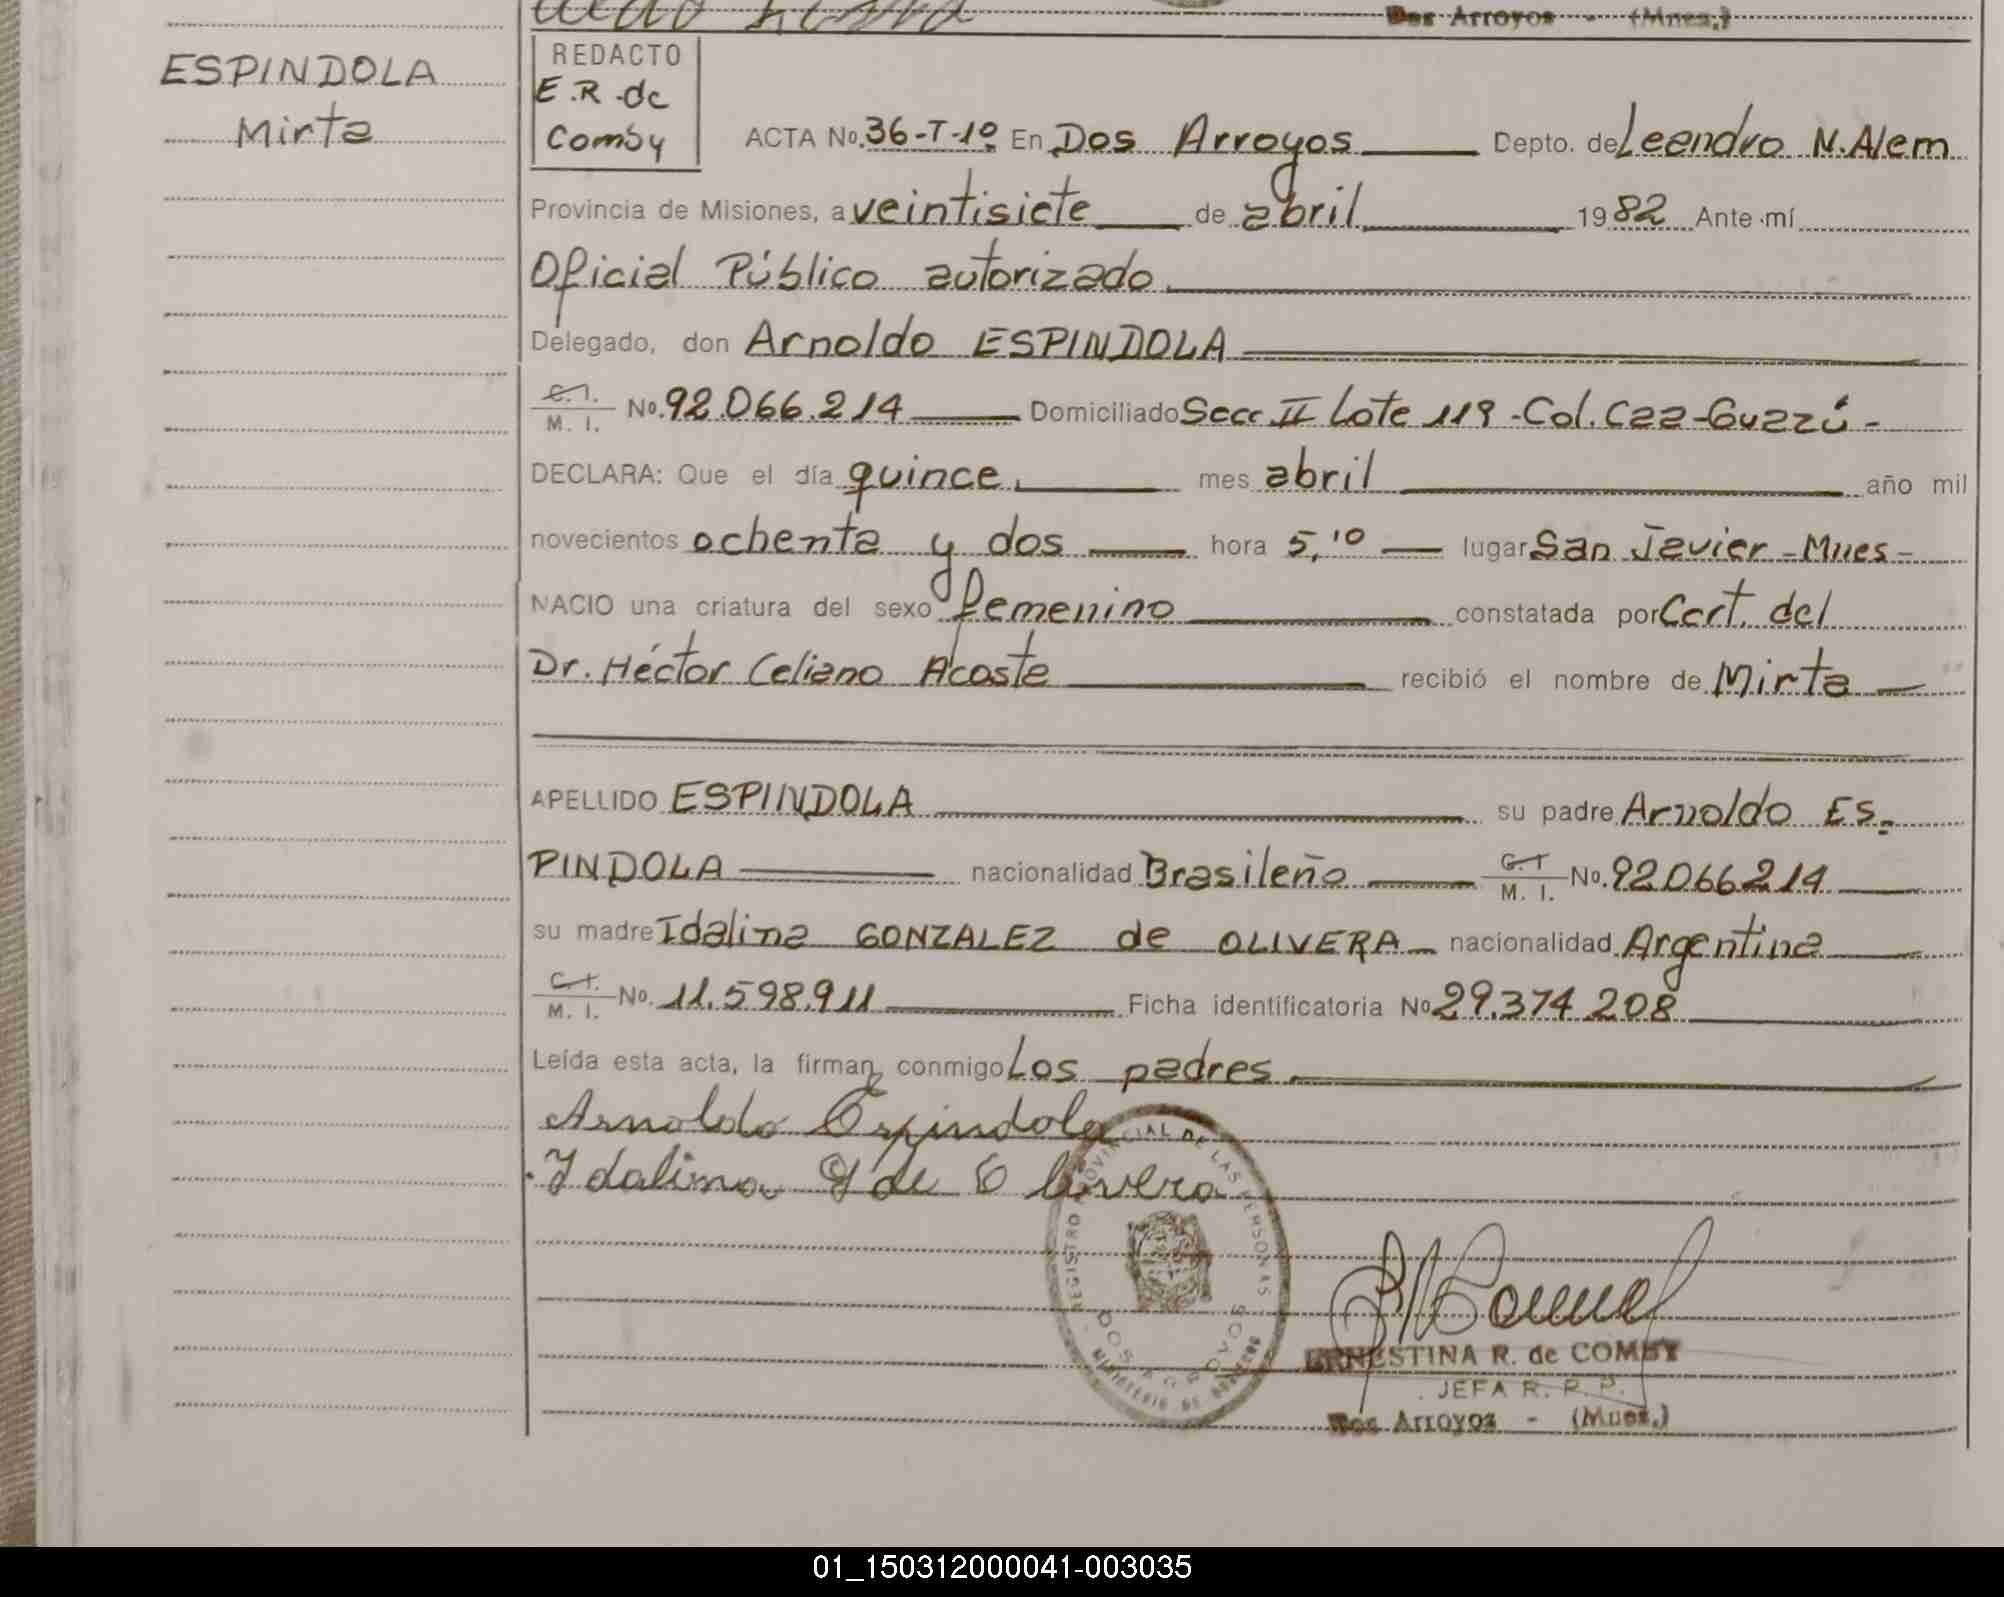 Dos Arroyos - (Mnes.)
ESPINDOLA
Mirta
REDACTO
E.R.de
Comby
ACTA No. 36-T-1º En Dos Arroyos Depto. de Leandro N. Alem
Provincia de Misiones, a veintisiete de abril 1982 Ante mí
Oficial Público autorizado
Delegado, don Arnoldo ESPINDOLA
C.I. M. I. No. 92.066.214 Domiciliado Secc. II Lote 119 - Col. Caa-Guazú -
DECLARA: Que el día quince mes abril año mil
novecientos ochenta y dos hora 5,10 lugar San Javier - Mnes -
NACIO una criatura del sexo femenino constatada por Cert. del
Dr. Héctor Celiano Acosta recibió el nombre de Mirta
APELLIDO ESPINDOLA su padre Arnoldo ES-
PINDOLA nacionalidad Brasileño C.I. M. I. No. 92.066.214
su madre Idalina GONZALEZ de OLIVERA nacionalidad Argentina
C.I. M. I. No. 11.598.911 Ficha identificatoria No 29.374.208
Leída esta acta, la firman conmigo Los padres
Arnoldo Espindola
Idalina G de Olivera
REGISTRO PROVINCIAL DE LAS PERSONAS
DOS ARROYOS
MINISTERIO DE GOBIERNO
ERNESTINA R. de COMBY
JEFA R. P. P.
Dos Arroyos - (Mnes.)
01_150312000041-003035